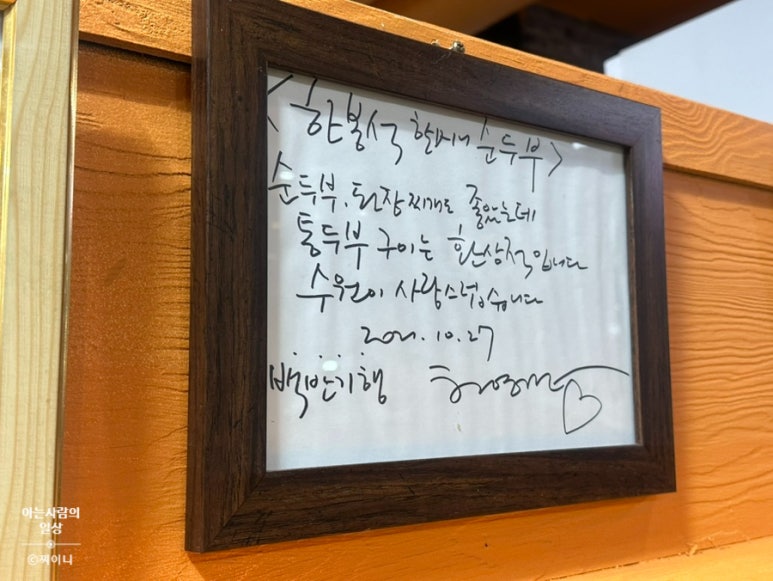 <한봉석 할머니 순두부>
순두부, 된장찌개도 좋았는데
통두부 구이는 환상적입니다
수원이 사랑스럽습니다
2021.10.27
백반기행
아는사람의
일상
©찌이니